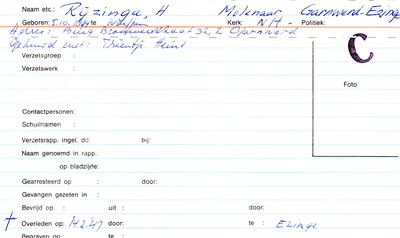 Naam etc.: Rijzinga, H Molenaar Garnwerd-Ezinge
Geboren: 5.10. te Kerk: N.H - Politiek:
Adres: Burg Brouwerstraat 32, Garnwerd
Gehuwd met: Trientje Heint
C
Verzetsgroep :
Verzetswerk :
Foto
Contactpersonen:
Schuilnamen :
Verzetsrapp. ingel. dd. bij:
Naam genoemd in rapp.:
op bladzijde:
Gearresteerd op : door:
Gevangen gezeten in :
Bevrijd op : uit : door:
† Overleden op: 14.2.47 door: te : Ezinge
Begraven op : te :